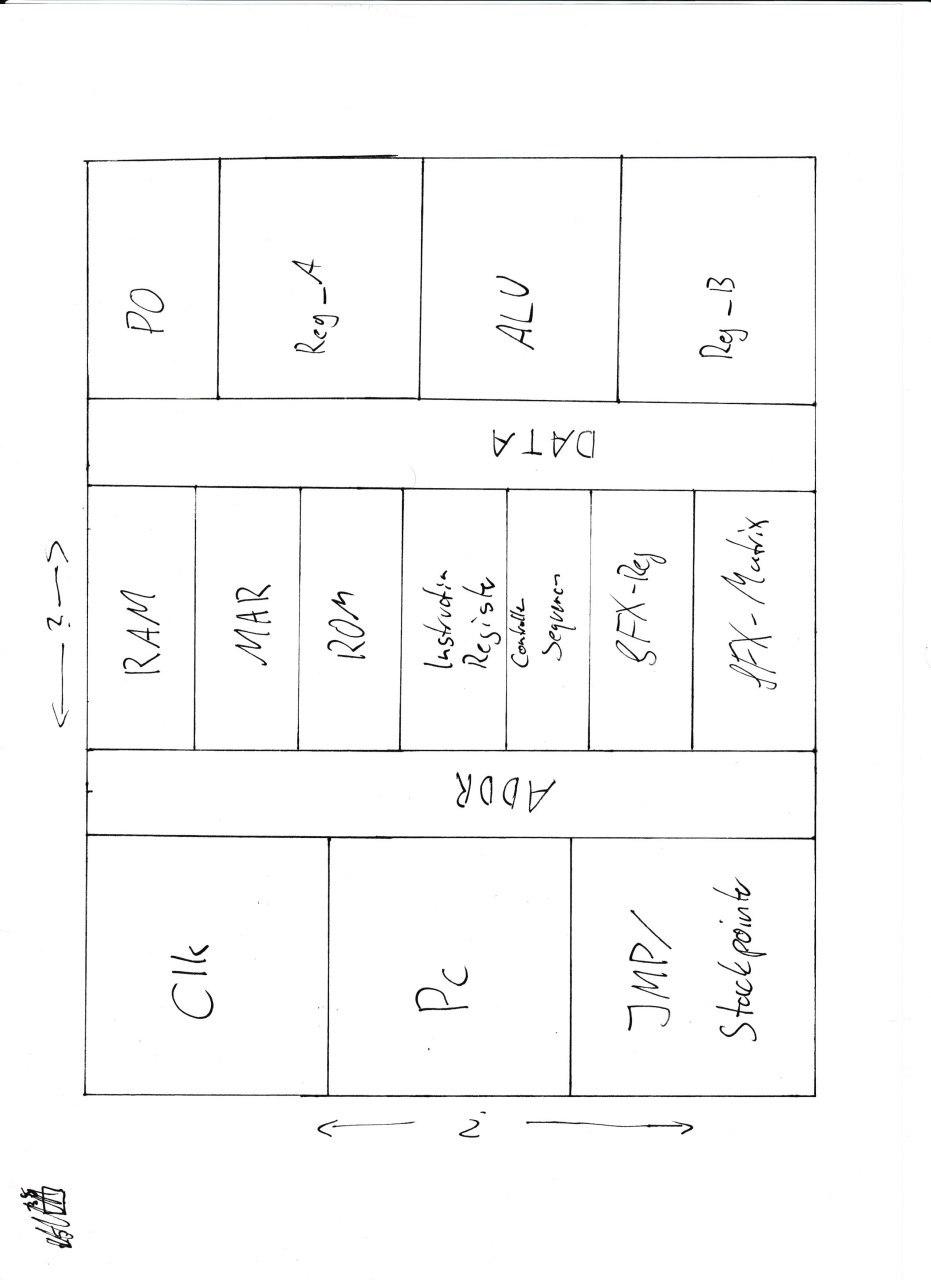 ← ? →
Clk
Pc
JMP/
Stackpointer
← ? →
ADDR
RAM
MAR
ROM
Instruction
Register
GFX-Reg
GFX-Matrix
DATA
PO
Reg_A
ALU
Reg_B